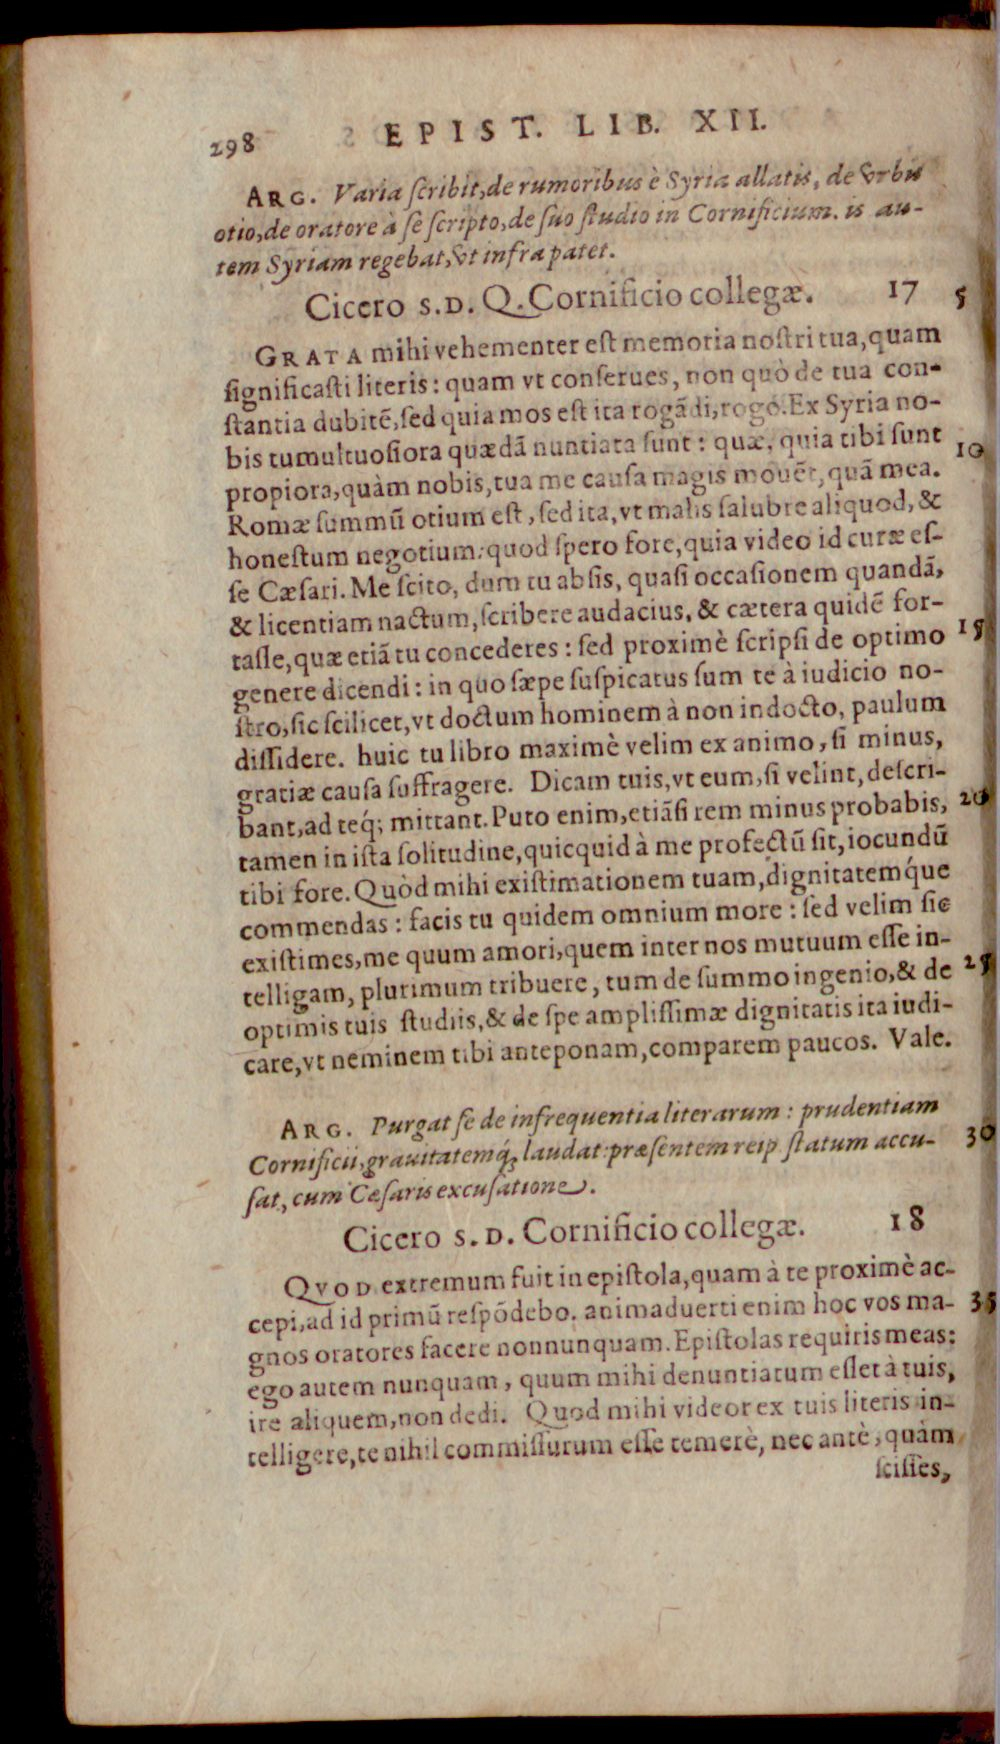 298 EPIST. LIB. XII.
ARG. Varia ſcribit, de rumoribus è Syria allatis, de vrbis
otio, de oratore à ſe ſcripto, de ſuo ſtudio in Cornificium. is au-
tem Syriam regebat, vt infra patet.
Cicero S.D. Q. Cornificio collegæ. 17 5
GRATA mihi vehementer eſt memoria noſtri tua, quam
ſignificaſti literis: quam vt conſerues, non quò de tua con-
ſtantia dubitē, ſed quia mos eſt ita rogādi, rogo. Ex Syria no-
bis tumultuoſiora quædā nuntiata ſunt: quæ, quia tibi ſunt 10
propiora, quàm nobis, tua me cauſa magis mouēt, quā mea.
Romæ ſummū otium eſt, ſed ita, vt malis ſalubre aliquod, &
honeſtum negotium: quod ſpero fore, quia video id curæ eſ-
ſe Cæſari. Me ſcito, dum tu abſis, quaſi occaſionem quandā,
& licentiam nactum, ſcribere audacius, & cætera quidē for-
taſſe, quæ etiā tu concederes: ſed proximè ſcripſi de optimo 15
genere dicendi: in quo ſæpe ſuſpicatus ſum te à iudicio no-
ſtro, ſic ſcilicet, vt doctum hominem à non indocto, paulum
diſſidere. huic tu libro maximè velim ex animo, ſi minus,
gratiæ cauſa ſuffragere. Dicam tuis, vt eum, ſi velint, deſcri-
bant, ad teq́; mittant. Puto enim, etiāſi rem minus probabis, 20
tamen in iſta ſolitudine, quicquid à me profectū ſit, iocundū
tibi fore. Quòd mihi exiſtimationem tuam, dignitatemq́ue
commendas: facis tu quidem omnium more: ſed velim ſic
exiſtimes, me quum amori, quem inter nos mutuum eſſe in-
telligam, plurimum tribuere, tum de ſummo ingenio, & de 25
optimis tuis ſtudiis, & de ſpe ampliſſimæ dignitatis ita iudi-
care, vt neminem tibi anteponam, comparem paucos. Vale.
ARG. Purgat ſe de infrequentia literarum: prudentiam
Cornificii, grauitatemq́; laudat: præſentem reip ſtatum accu- 30
ſat, cum Cæſaris excuſatione.
Cicero S.D. Cornificio collegæ. 18
QVOD extremum fuit in epiſtola, quam à te proximè ac-
cepi, ad id primū reſpōdebo. animaduerti enim hoc vos ma- 35
gnos oratores facere nonnunquam. Epiſtolas requiris meas:
ego autem nunquam, quum mihi denuntiatum eſſet à tuis,
ire aliquem, non dedi. Quod mihi videor ex tuis literis in-
telligere, te nihil commiſſurum eſſe temerè, nec antè, quàm
ſciſſes,